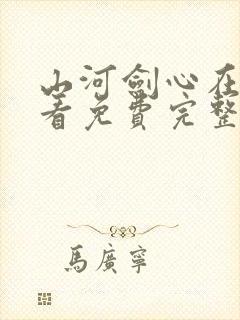 山河劍心在
看免費完整
馬廣寧